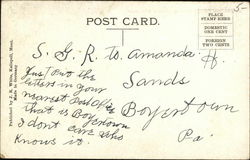 POST CARD.
PLACE
STAMP HERE
DOMESTIC
ONE CENT
FOREIGN
TWO CENTS
S. G. R. to Amanda
Sands
Boyertown
Pa.
Just the
letters in your
nearest
that is Boyertown
I dont care who
knows it.
Published by J. R. White, Kalispell, Mont.
Made in Germany